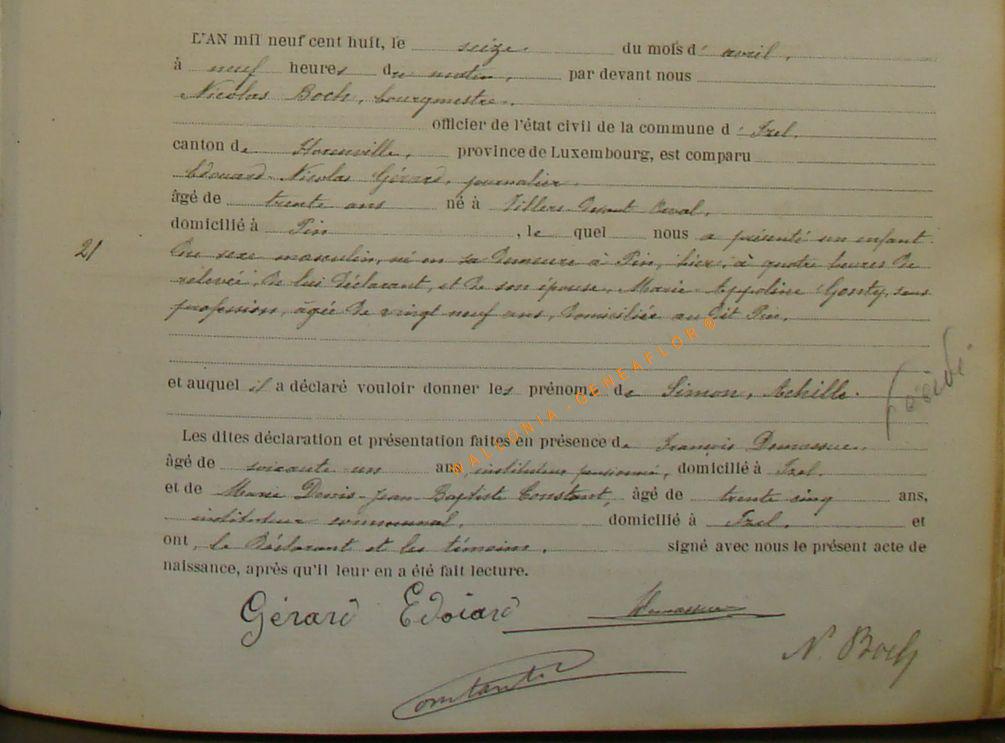 L'AN mil neuf cent huit, le seize du mois d'avril,
à neuf heures du matin, par devant nous
Nicolas Boch, bourgmestre,
officier de l'état civil de la commune d'Izel,
canton de Florenville, province de Luxembourg, est comparu
Edouard-Nicolas Gérard, journalier,
âgé de trente ans né à Villers devant Orval,
domicilié à Pin, lequel nous a présenté un enfant
21
du sexe masculin, né en sa demeure à Pin, hier, à quatre heures de
relevée, de lui déclarant, et de son épouse, Marie-Appoline Gonty, sans
profession, âgée de vingt neuf ans, domiciliée au dit Pin,
et auquel il a déclaré vouloir donner les prénoms de Simon, Achille.
décédé.
Les dites déclaration et présentation faites en présence de François Demasure,
âgé de soixante un ans, instituteur pensionné, domicilié à Izel
et de Marie Denis-Jean-Baptiste Constant, âgé de trente cinq ans,
instituteur communal, domicilié à Izel, et
ont, le déclarant et les témoins, signé avec nous le présent acte de
naissance, après qu'il leur en a été fait lecture.
Gérard Edoiard
N. Boch
Constant
WALLONIA-GENEAFLOR©